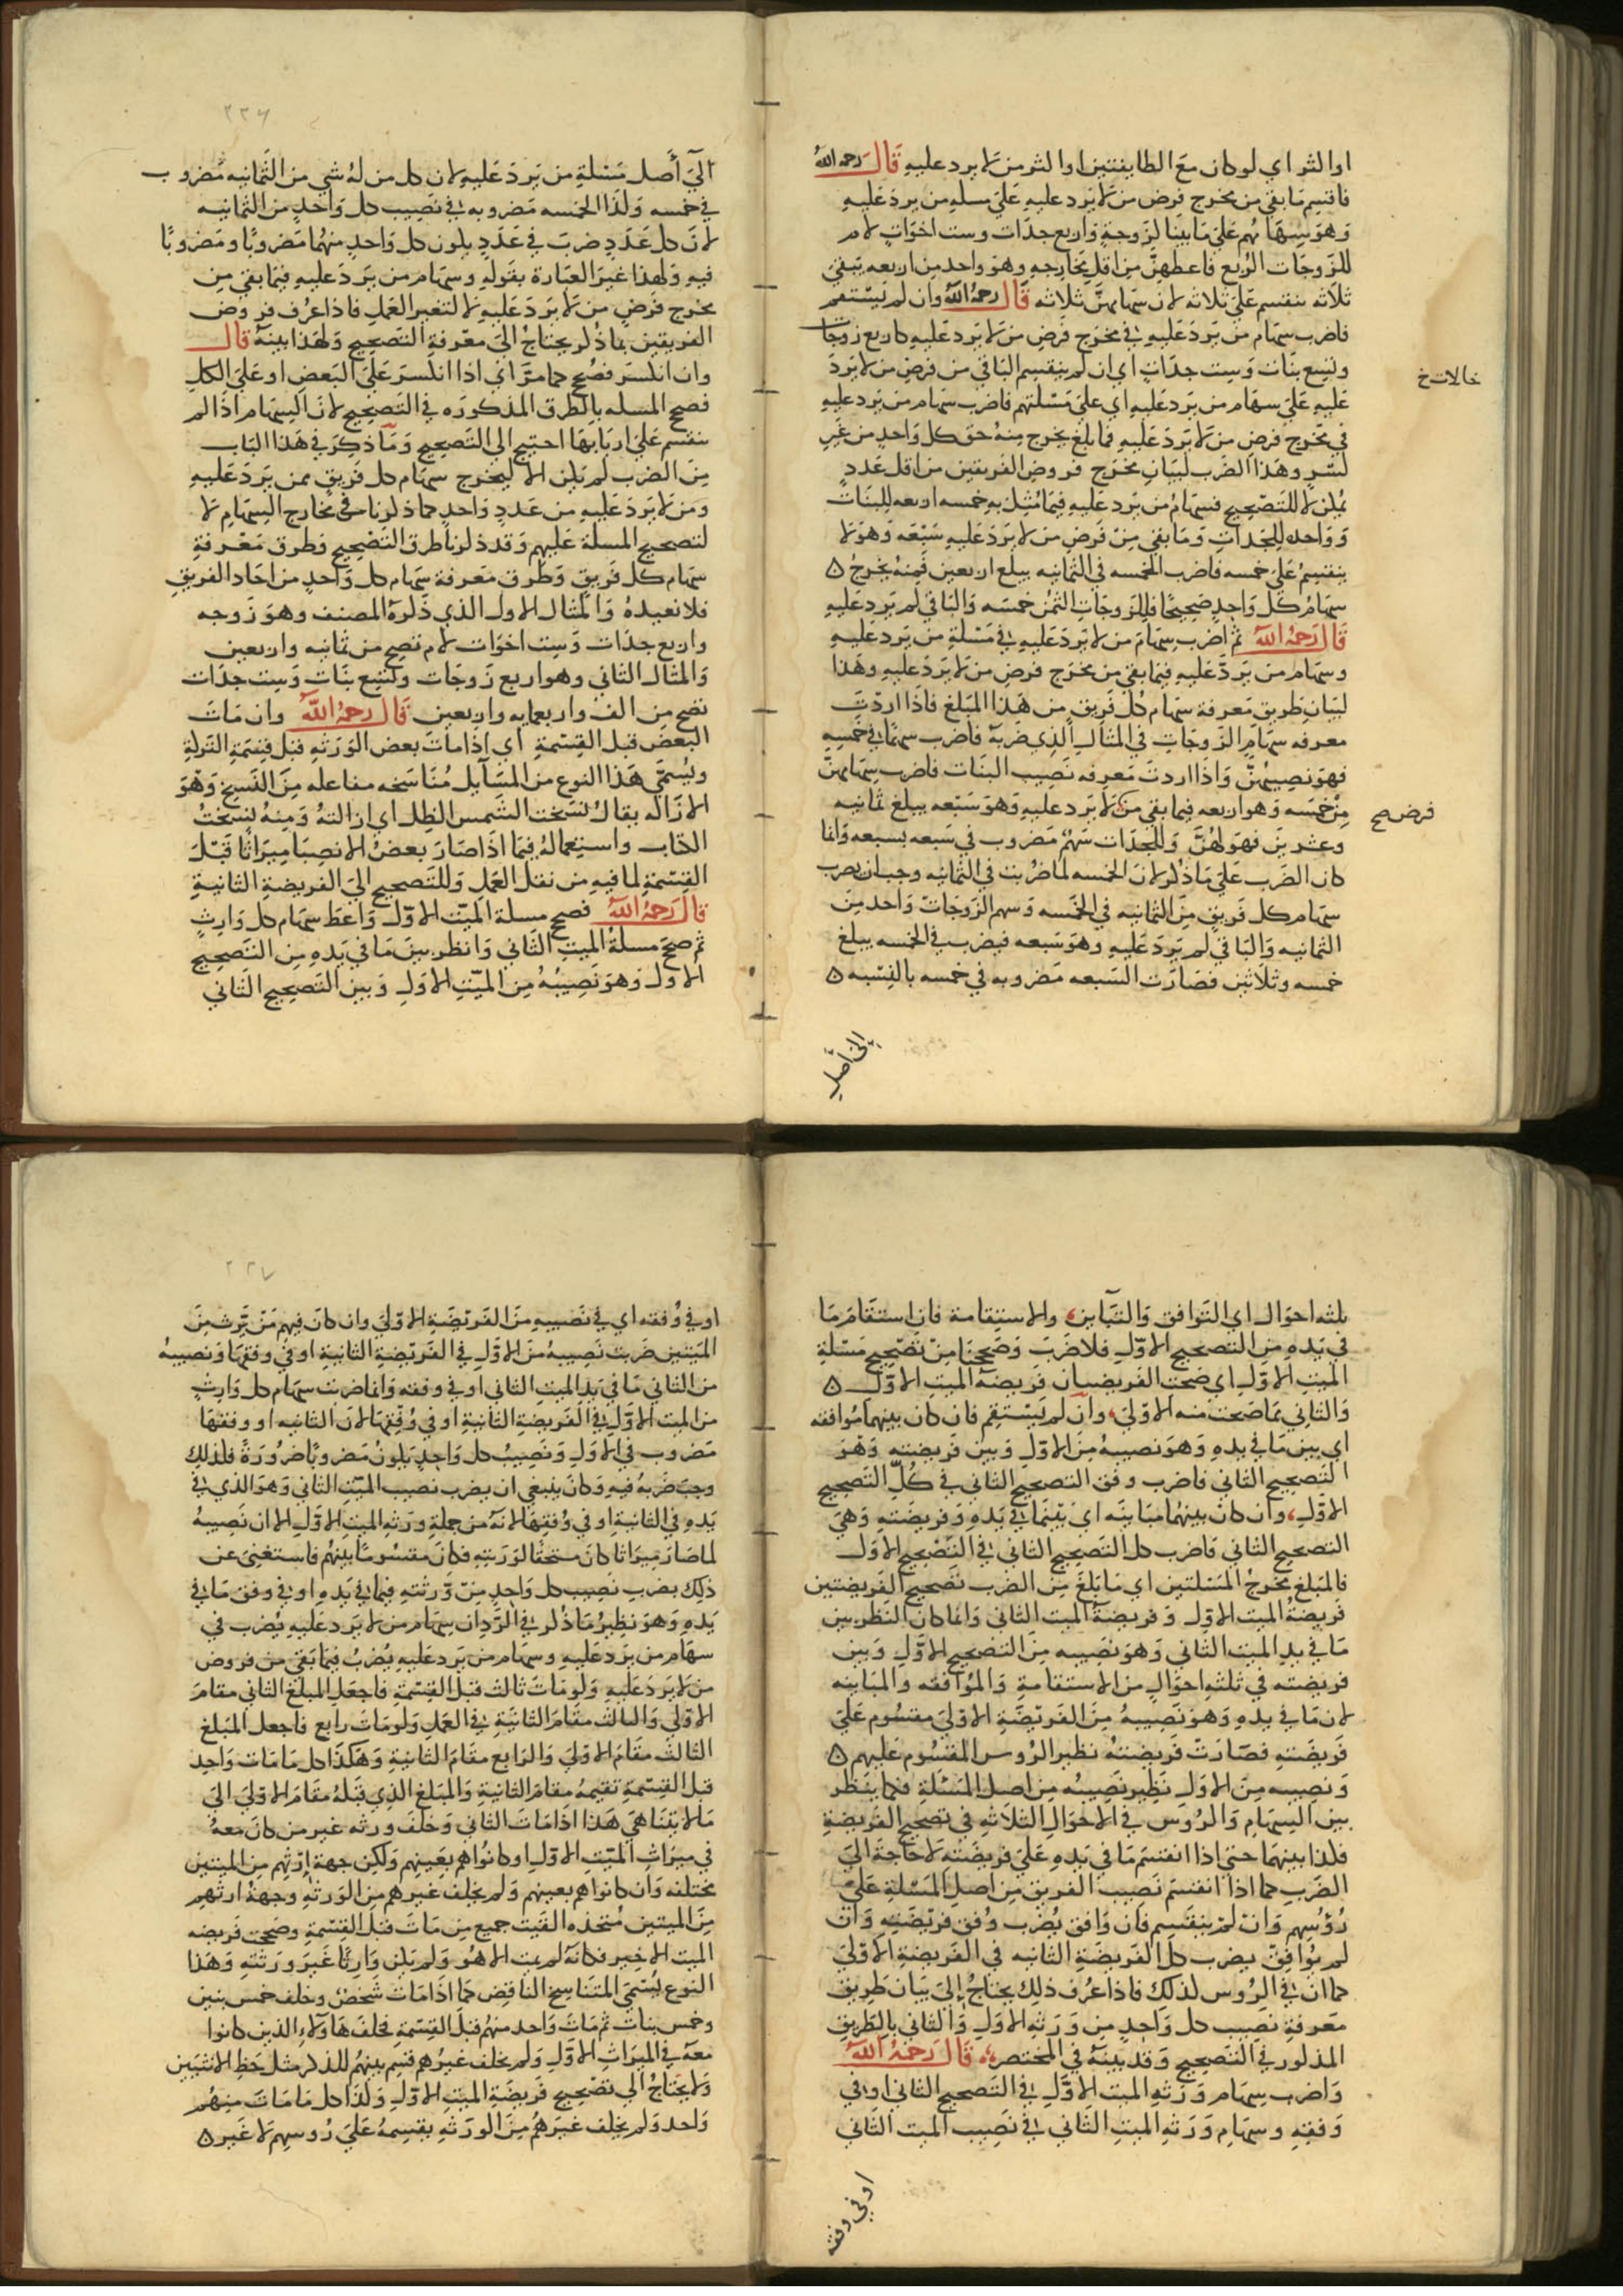 او اكثر اي لو كان مع الطايفتين او اكثر من لا يرد عليه قال رحمه الله
فاقسم ما بقي من مخرج فرض من لا يرد عليه علي مسلة من يرد عليه
وهو سهامهم علي ما بينا لزوجة واربع جدات وست اخوات لام
للزوجات الربع فاعطهن من اقل مخارجه وهو واحد من اربعه يبقي
ثلاثه تنقسم علي ثلاثه لان سهامهن ثلاثه قال رحمه الله وان لم يستقم
فاضرب سهام من يرد عليه في مخرج فرض من لا يرد عليه كاربع زوجات
وتسع بنات وست جدات اي ان لم ينقسم الباقي من فرض من لا يرد
عليه علي سهام من يرد عليه اي علي مسئلتهم فاضرب سهام من يرد عليه
في مخرج فرض من لا يرد عليه فما بلغ يخرج منه حق كل واحد من غير
كسر وهذا الضرب لبيان مخرج فروض الفريقين من اقل عدد
يمكن لا للتصحيح فسهام من يرد عليه فيما مثل به خمسه اربعه للبنات
وواحد للجدات وما بقي من فرض من لا يرد عليه سبعه وهو لا
ينقسم علي خمسه فاضرب الخمسه في الثمانيه يبلغ اربعين فمنه يخرج
سهام كل واحد صحيحا فللزوجات الثمن خمسه والباقي لم يرد عليه
قال رحمه الله ثم اضرب سهام من لا يرد عليه في مسئلة من يرد عليه
وسهام من يرد عليه فيما بقي من مخرج فرض من لا يرد عليه وهذا
لبيان طريق معرفة سهام كل فريق من هذا المبلغ فاذا اردت
معرفه سهام الزوجات في المثال الذي ضربه فاضرب سهما في خمسه
فهو نصيبهن واذا اردت معرفه نصيب البنات فاضرب سهامهن
من خمسه وهو اربعه فيما بقي من لا يرد عليه وهو سبعه يبلغ ثمانيه
وعشرين فهو لهن وللجدات سهم مضروب في سبعه بسبعه وانما
كان الضرب علي ما ذكر لان الخمسه لما ضربت في الثمانيه وجب ان يضرب
سهام كل فريق من الثمانيه في الخمسه وسهم الزوجات واحد من
الثمانيه والباقي لم يرد عليه وهو سبعه فيضرب في الخمسه يبلغ
خمسه وثلاثين فصارت السبعه مضروبه في خمسه بالنسبه
خالات خ
فرض صح
الي اصل
٢٣٦
الي أصل مسئلة من يرد عليه لان كل من له شي من الثمانيه مضروب
في خمسه وكذا الخمسه مضروبه في نصيب كل واحد من الثمانيه
لان كل عدد ضرب في عدد يكون كل واحد منهما مضروبا ومضروبا
فيه ولهذا غير العبارة بقوله وسهام من يرد عليه فيما بقي من
مخرج فرض من لا يرد عليه لا لتغير العمل فاذا عرف فروض
الفريقين بما ذكر يحتاج الي معرفة التصحيح ولهذا بينه قال
وان انكسر فصحح كما مر اي اذا انكسر علي البعض او علي الكل
فصحح المسله بالطرق المذكوره في التصحيح لان السهام اذا لم
تنقسم علي اربابها احتيج الي التصحيح وما ذكر في هذا الباب
من الضرب لم يكن الا ليخرج سهام كل فريق ممن يرد عليه
ومن لا يرد عليه من عدد واحد كما ذكرنا في مخارج السهام لا
لتصحيح المسلة عليهم وقد ذكرنا طرق التصحيح وطرق معرفة
سهام كل فريق وطرق معرفة سهام كل واحد من احاد الفريق
فلا نعيده والمثال الاول الذي ذكره المصنف وهو زوجه
واربع جدات وست اخوات لام تصح من ثمانيه واربعين
والمثال الثاني وهو اربع زوجات وتسع بنات وست جدات
تصح من الف واربعمايه واربعين قال رحمه الله وان مات
البعض قبل القسمة اي اذا مات بعض الورثه قبل قسمة التركة
ويسمي هذا النوع من المسايل مناسخه مفاعله من النسخ وهو
الازاله يقال نسخت الشمس الظل اي ازالته ومنه نسخت
الكتاب واستعماله فيما اذا صار بعض الانصبا ميراثا قبل
القسمة لما فيه من نقل العمل وللتصحيح الي الفريضة الثانية
قال رحمه الله فصحح مسلة الميت الاول واعط سهام كل وارث
ثم صحح مسلة الميت الثاني وانظر بين ما في يده من التصحيح
الاول وهو نصيبه من الميت الاول وبين التصحيح الثاني
ثلثه احوال اي التوافق والتباين والاستقامة فان استقام ما
في يده من التصحيح الاول فلا ضرب وصحتا من تصحيح مسئلة
الميت الاول اي صحت الفريضتان فريضة الميت الاول
والثاني مما صحت منه الاولي وان لم يستقم فان كان بينهما موافقه
اي بين ما في يده وهو نصيبه من الاول وبين فريضته وهو
التصحيح الثاني فاضرب وفق التصحيح الثاني في كل التصحيح
الاول وان كان بينهما مباينه اي بينما في يده وفريضته وهي
التصحيح الثاني فاضرب كل التصحيح الثاني في التصحيح الاول
فالمبلغ مخرج المسئلتين اي ما بلغ من الضرب تصحيح الفريضتين
فريضة الميت الاول وفريضة الميت الثاني وانما كان النظر بين
ما في يد الميت الثاني وهو نصيبه من التصحيح الاول وبين
فريضته في ثلثه احوال من الاستقامة والموافقه والمباينه
لان ما في يده وهو نصيبه من الفريضة الاولي مقسوم علي
فريضته فصارت فريضته نظير الروس المقسوم عليهم
ونصيبه من الاول نظير نصيبه من اصل المسئلة فكما ينظر
بين السهام والروس في الاحوال الثلاثه في تصحيح الفريضة
فكذا بينهما حتي اذا انقسم ما في يده علي فريضته لا حاجة الي
الضرب كما اذا انقسم نصيب الفريق من اصل المسئلة علي
رؤسهم وان لم ينقسم فان وافق يضرب وفق فريضته وان
لم يوافق يضرب كل الفريضة الثانيه في الفريضة الاولي
كما ان في الروس لذلك فاذا عرف ذلك يحتاج الي بيان طريق
معرفة نصيب كل واحد من ورثه الاول والثاني بالطريق
المذكور في التصحيح وقد بينه في المختصر قال رحمه الله
واضرب سهام ورثه الميت الاول في التصحيح الثاني او في
وفقه وسهام ورثه الميت الثاني في نصيب الميت الثاني
او في وفقه
٢٣٧
او في وفقه اي في نصيبه من الفريضة الاولي وان كان فيهم من يرث من
الميتين ضربت نصيبه من الاول في الفريضة الثانية او في وفقها ونصيبه
من الثاني ما في يد الميت الثاني او في وفقه وانما ضربت سهام كل وارث
من الميت الاول في الفريضة الثانية او في وفقها لان الثانيه او وفقها
مضروب في الاول ونصيب كل واحد يكون مضروبا ضرورة فلذلك
وجب ضربه فيه وكان ينبغي ان يضرب نصيب الميت الثاني وهو الذي في
يده في الثانية او في وفقها لانه من جملة ورثه الميت الاول الا ان نصيبه
لما صار ميراثا كان مستحقا لورثته فكان مقسوما بينهم فاستغني عن
ذلك بضرب نصيب كل واحد من ورثته فيما في يده او في وفق ما في
يده وهو نظير ما ذكر في الرد ان سهام من لا يرد عليه يضرب في
سهام من يرد عليه وسهام من يرد عليه يضرب فيما بقي من فروض
من لا يرد عليه ولو مات ثالث قبل القسمة فاجعل المبلغ الثاني مقام
الاولي والثالث مقام الثانية في العمل ولو مات رابع فاجعل المبلغ
الثالث مقام الاولي والرابع مقام الثانية وهكذا كل ما مات واحد
قبل القسمة تقيمه مقام الثانية والمبلغ الذي قبله مقام الاولي الي
ما لا يتناهي هذا اذا مات الثاني وخلف ورثه غير من كان معه
في ميراث الميت الاول او كانوا هم بعينهم ولكن جهة ارثهم من الميتين
مختلفه وان كانوا هم بعينهم ولم يخلف غيرهم من الورثه وجهة ارثهم
من الميتين متحده القيت جميع من مات قبل القسمة وصححت فريضه
الميت الاخير فكانه لم يمت الا هو ولم يكن وارثا غير ورثته وهذا
النوع يسمي المتناسخ الناقص كما اذا مات شخص وخلف خمس بنين
وخمس بنات ثم مات واحد منهم قبل القسمة فخلف هاولاء الذين كانوا
معه في الميراث الاول ولم يخلف غيرهم قسم بينهم للذكر مثل حظ الانثيين
ولا يحتاج الي تصحيح فريضة الميت الاول وكذا كل ما مات منهم
واحد ولم يخلف غيرهم من الورثه بقسمه علي روسهم لا غير